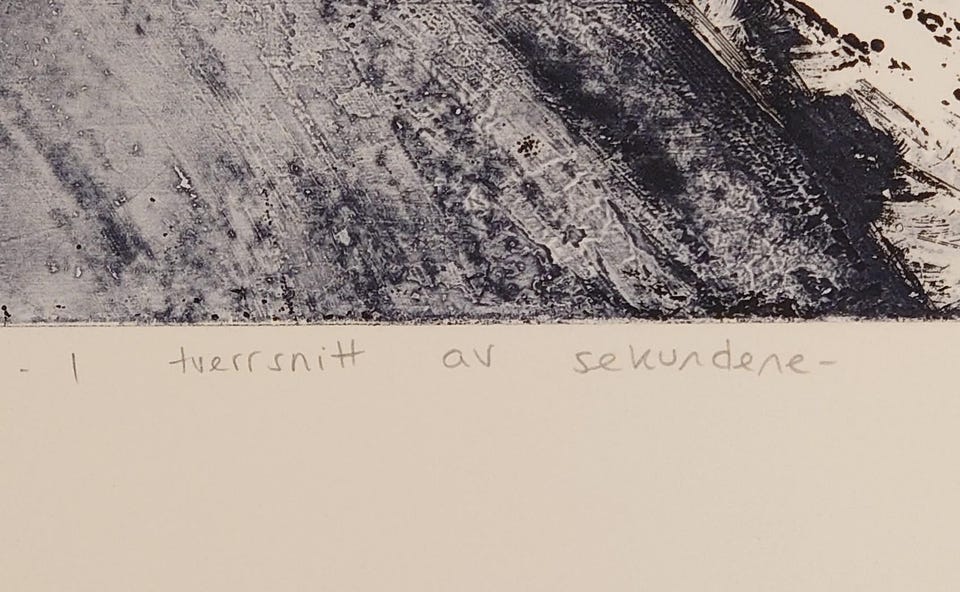 - I tverrsnitt av sekundene -